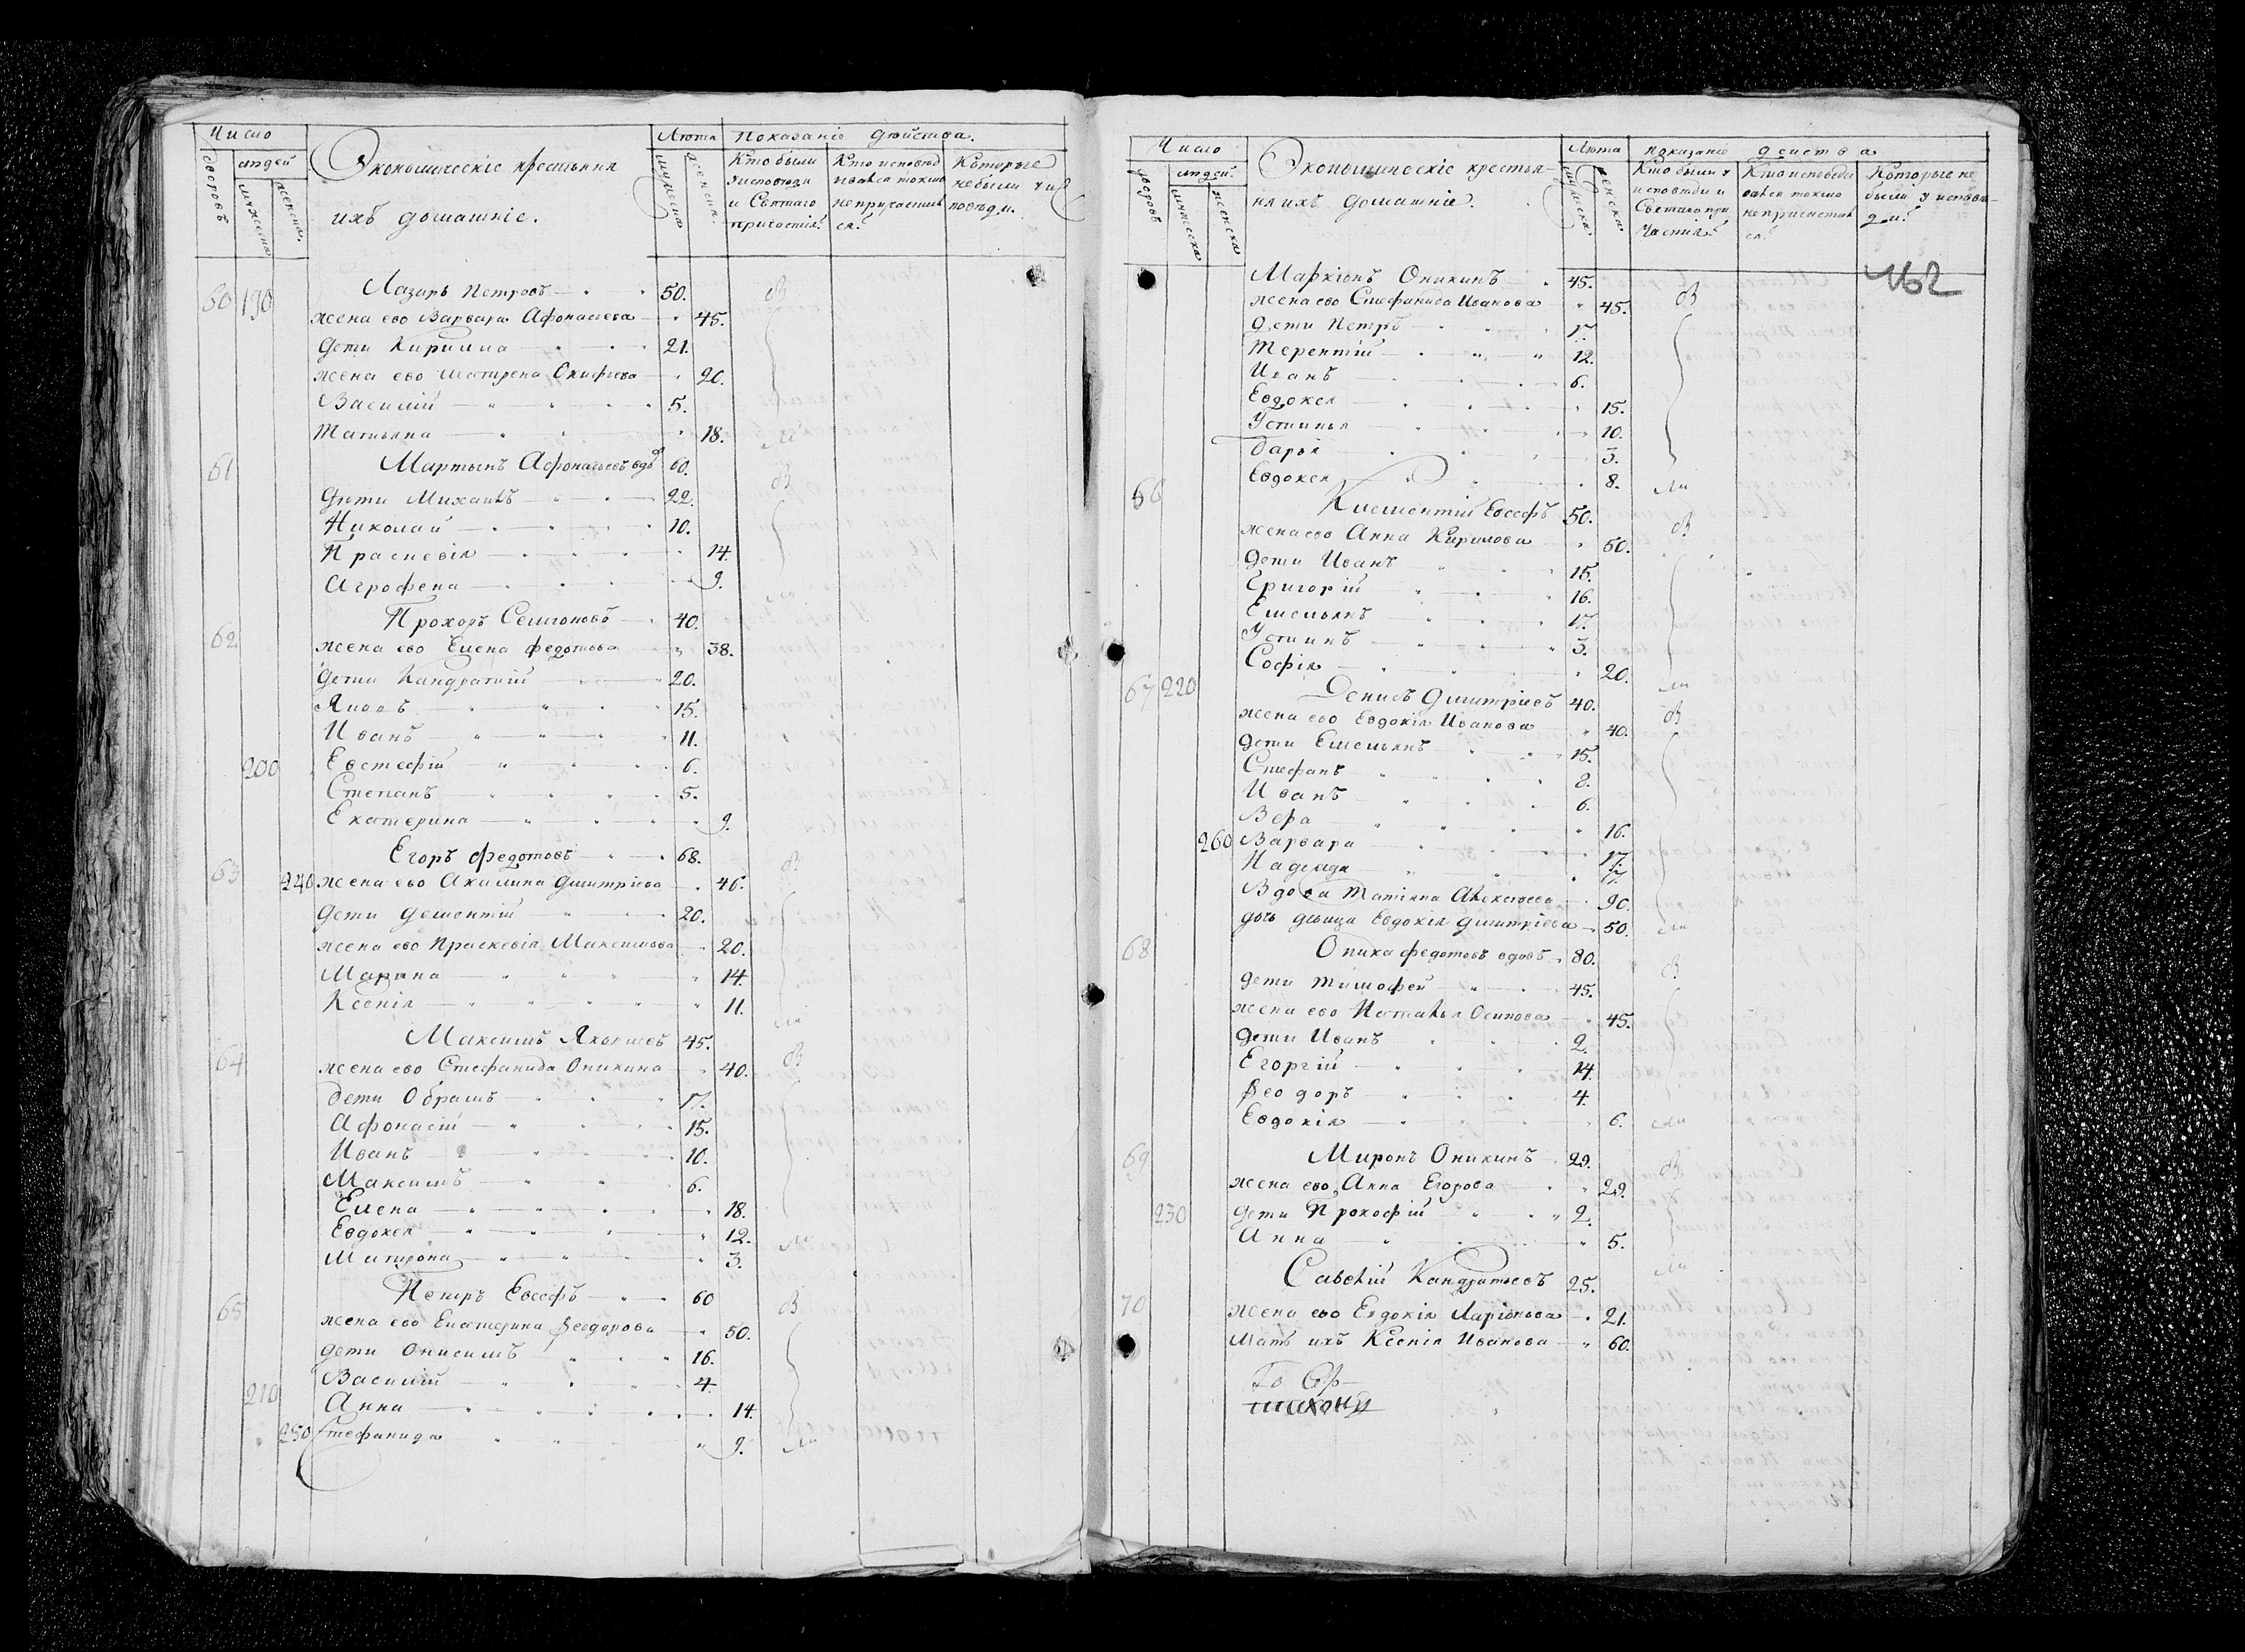 Число
Лѣта Показанiе дѣйства.
дворовъ
людей
мужеска
женска
Экономическiе крестьяня
ихъ домашнiе.
мужеска
женска
Кто были
у исповѣди
и Святаго
причастiя
Кто исповѣд
овался токмо
не причастил
ся
Которые
не были у ис
повѣди.
60 190 Лазарь Петровъ 50.
жена ево Варвара Афонасиева 45.
дети Кирилла 21.
жена ево Матрена Окифиева 20.
Василiй 5.
Татьяна 18.
61 Мартынъ Афонасьевъ вдовъ 60.
дѣти Михаилъ 22.
Николай 10.
Праскевiя 14.
Агрофена 9.
Прохоръ Семионовъ 40.
62 жена ево Елена Федотова 38.
дети Кандратiй 20.
Яковъ 15.
Иванъ 11.
200 Евстефiй 6.
Степанъ 5.
Екатерина 9.
Егоръ Федотовъ 68.
63 240 жена ево Акилина Дмитрiева 46.
дети Дементiй 20.
жена ево Праскевiя Максимова 20.
Марина 14.
Ксенiя 11.
Максимъ Яковлевъ 45.
64 жена ево Стефанида Оникина 40.
дети Обрамъ 17.
Афонасiй 15.
Иванъ 10.
Максимъ 6.
Елена 18.
Евдокея 12.
Матрона 3.
Петръ Евсефъ 60
65 жена ево Екатерина Ѳеодорова 50.
дети Онисимъ 16.
Василiй 4.
210 Анна 14.
250 Стефанида 9.
Число
Лѣта показанiе действа
дворовъ
людей
мужеска
женска
Экономическiе крестья-
ня ихъ домашнiе.
мужеска
женска
Кто были у
исповѣди и
Святаго при
частия
Кто исповеди
вался токмо
не причастил
ся
Которые не
были у испове-
ди
162
Маркiонъ Оникинъ 45.
жена ево Стефанида Иванова 45.
дети Петръ 17.
Терентiй 12.
Иванъ 6.
Евдокея 15.
Устинья 10.
Дарья 3.
Евдокея 8.
66 Клементiй Евсефъ 50.
жена ево Анна Кирилова 50.
дети Иванъ 15.
Григорiй 16.
Емельянъ 17.
Устинъ 3.
Софiя 20.
67 220 Денисъ Дмитриевъ 40.
жена ево Евдокiя Иванова 40.
дети Емельянъ 15.
Стефанъ 8.
Иванъ 6.
Вера 16.
260 Варвара 17.
Надежда 17.
Вдова Татiяна Алексѣева 90.
дочь девица Евдокiя Дмитрiева 50.
68 Оника Федотовъ вдовъ 80.
дети Тимофей 45.
жена ево Наталья Осипова 45.
дети Иванъ 2.
Егоргiй 14.
Ѳеодоръ 4.
Евдокiя 6.
69 Миронъ Оникинъ 29.
жена ево Анна Егорова 29.
230 дети Прокофiй 2.
Анна 5.
Савелiй Кандратьевъ 25.
70 жена ево Евдокiя Ларiонова 21.
мать ихъ Ксенiя Иванова 60.